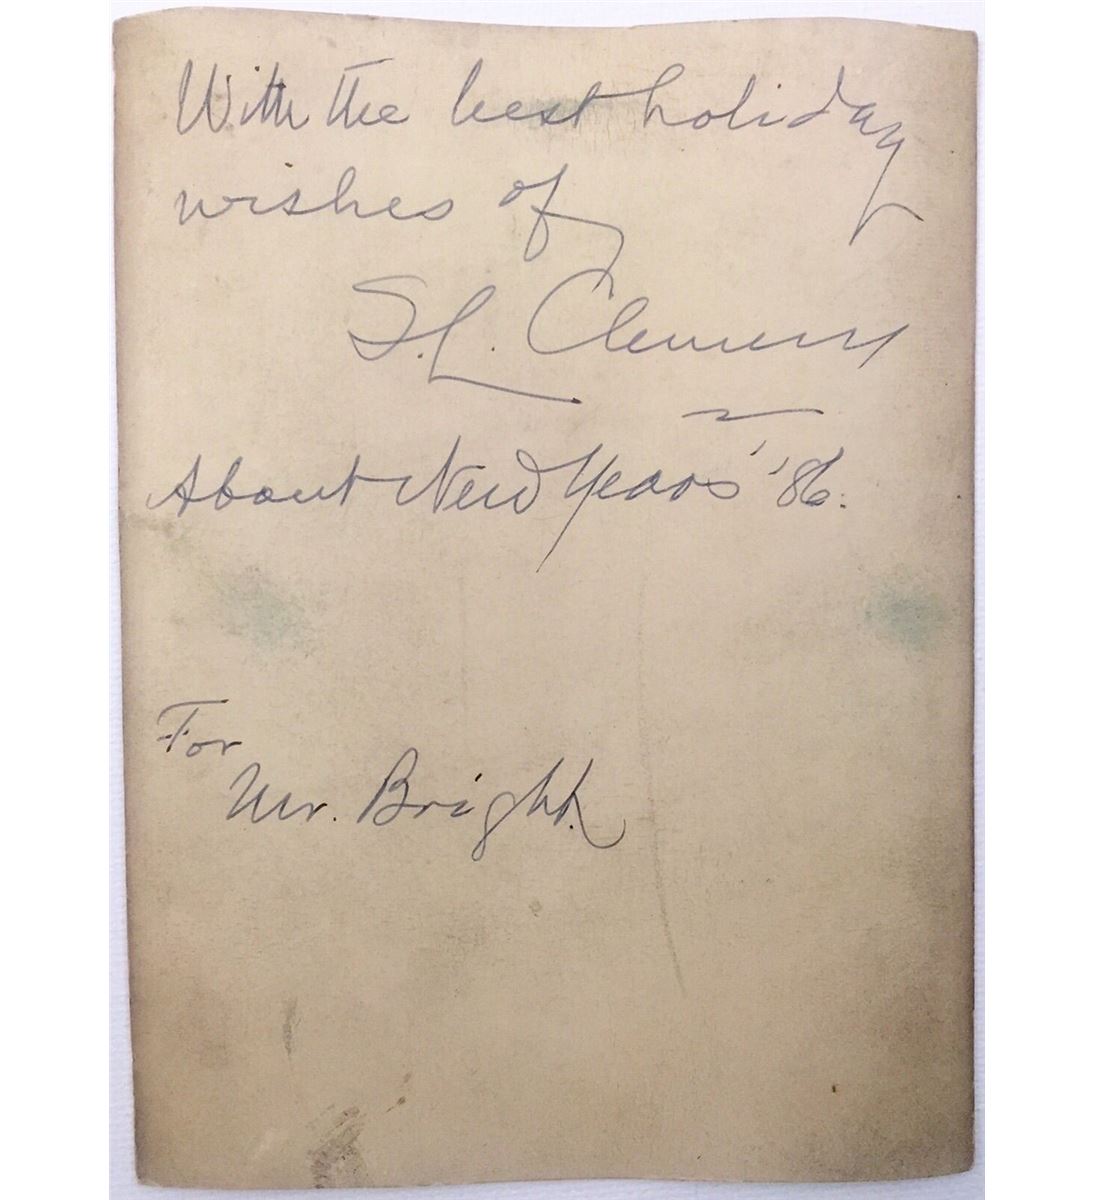 With the best holiday
wishes of
S. L. Clemens
About New Years' '86.
For
Mr. Bright.